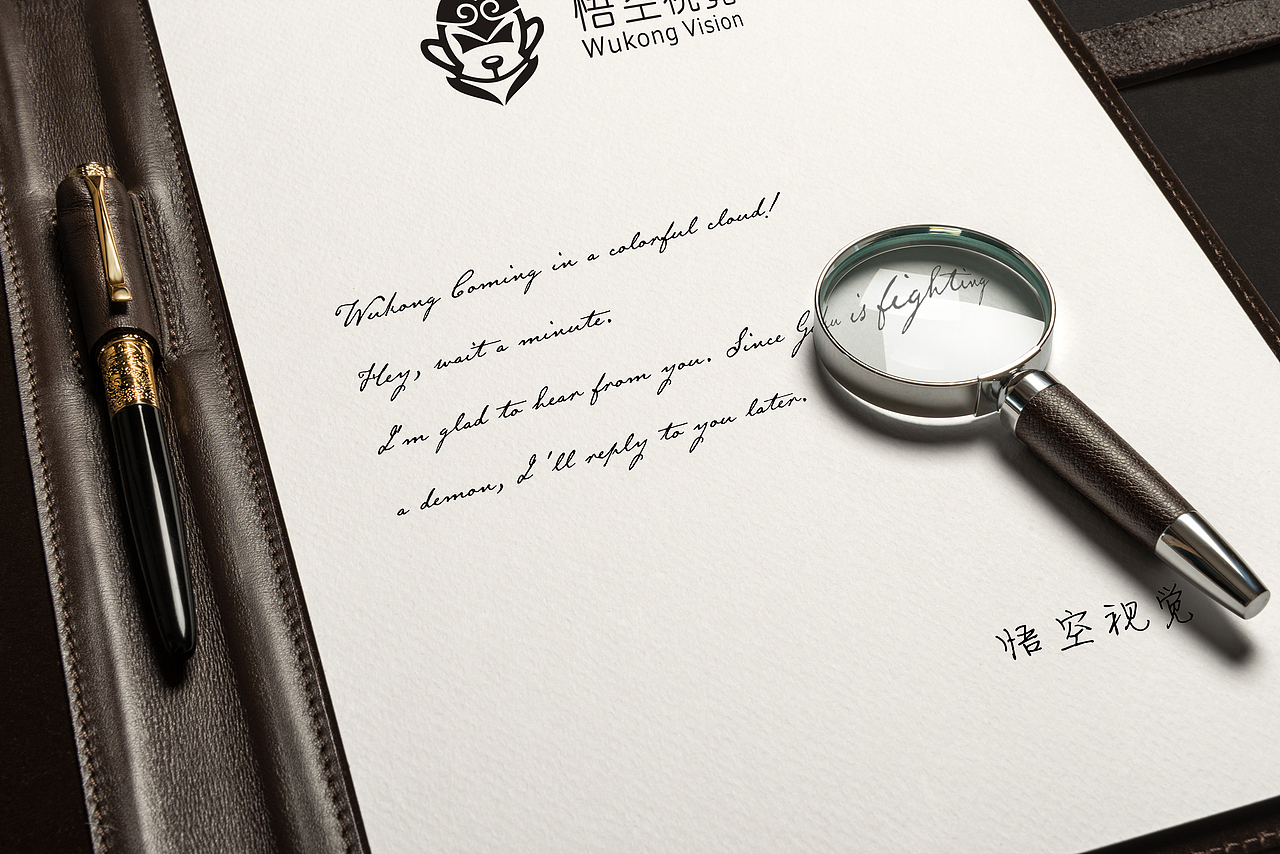 悟空视觉
Wukong Vision
Wukong Coming in a colorful cloud!
Hey, wait a minute.
I'm glad to hear from you. Since Goku is fighting
a demon, I'll reply to you later.
悟空视觉